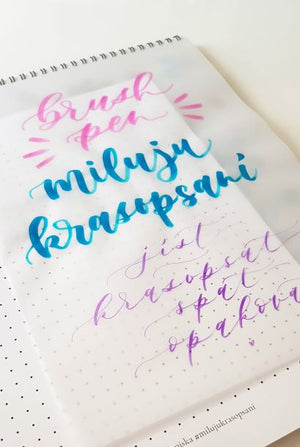 brush
pen
miluju
krasopsaní
jíst
krasopsát
spát
opakova
#milujukrasopsani